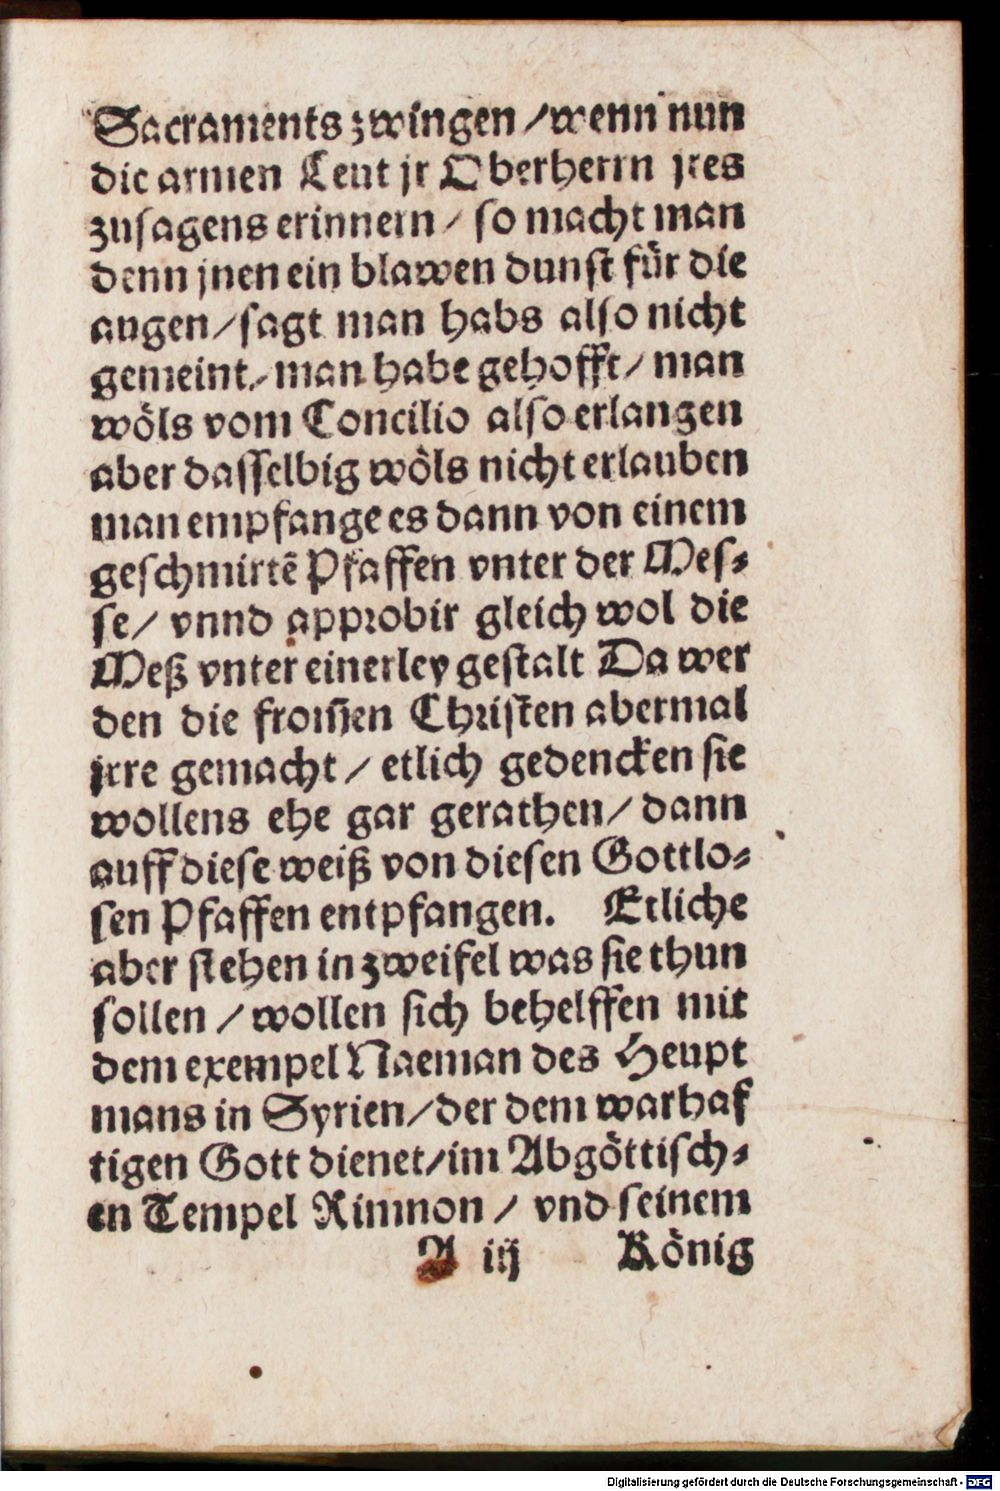 Sacraments zwingen / wenn nun
die armen Leut jr Oberherrn jres
zusagens erinnern / so macht man
denn jnen ein blawen dunst für die
augen / sagt man habs also nicht
gemeint / man habe gehofft / man
wöls vom Concilio also erlangen
aber dasselbig wöls nicht erlauben
man empfange es dann von einem
geschmirtẽ Pfaffen vnter der Mes⸗
se / vnnd approbir gleich wol die
Meß vnter einerley gestalt Da wer
den die fromen Christen abermal
jrre gemacht / etlich gedencken sie
wollens ehe gar gerathen / dann
auff diese weiß von diesen Gottlo⸗
sen Pfaffen entpfangen. Etliche
aber stehen in zweifel was sie thun
sollen / wollen sich behelffen mit
dem exempel Naeman des Heupt
mans in Syrien / der dem warhaf
tigen Gott dienet / im Abgöttisch⸗
en Tempel Rimnon / vnd seinem
A iij König
Digitalisierung gefördert durch die Deutsche Forschungsgemeinschaft - DFG